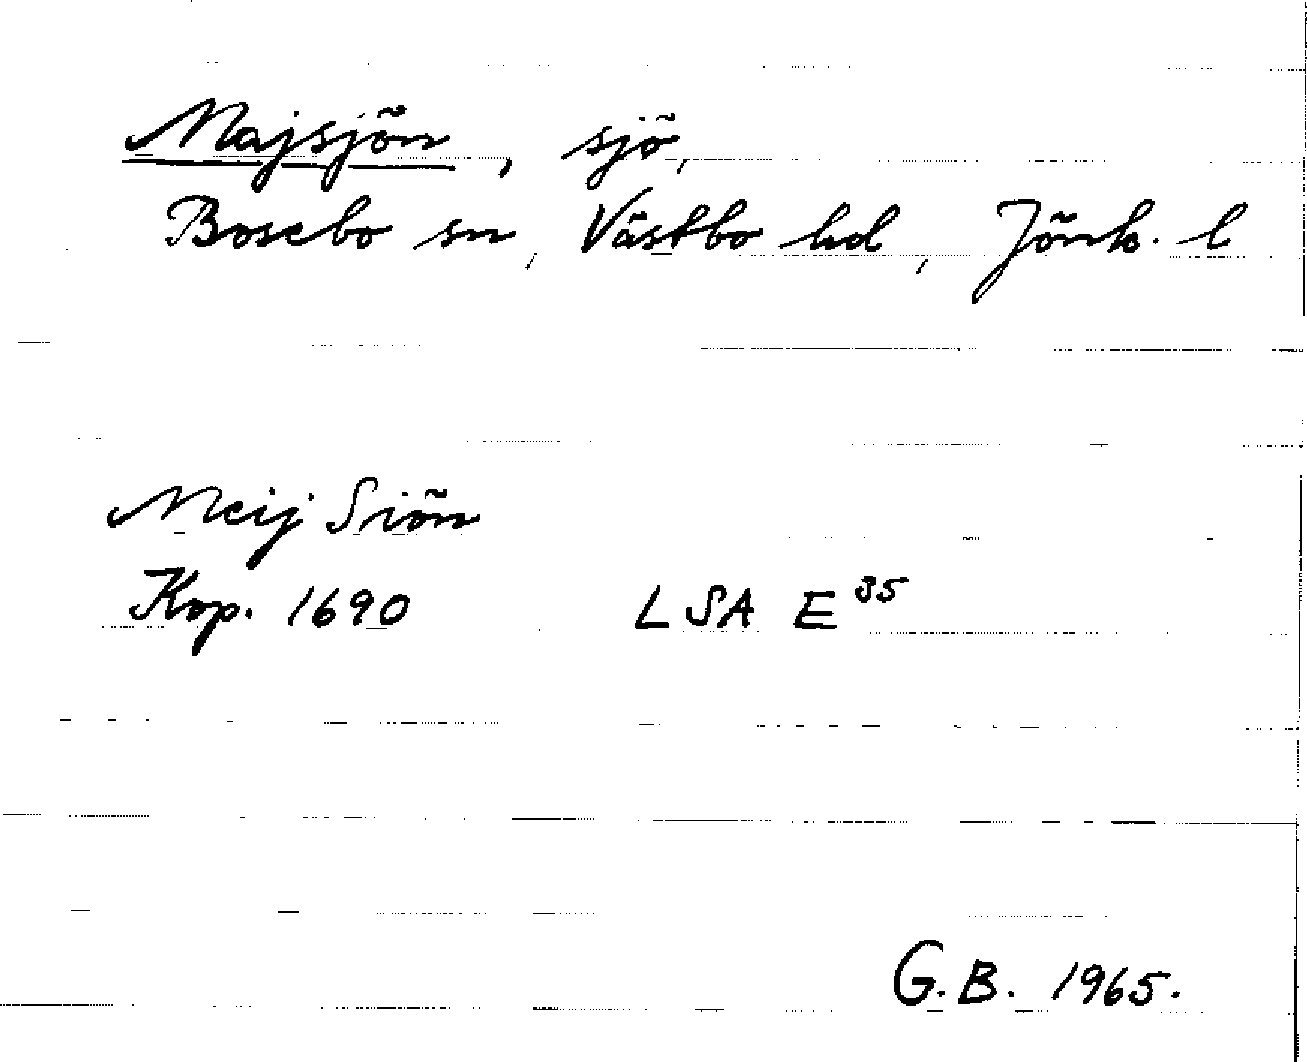 Majsjön, sjö,
Bosebo sn, Västbo hd, Jönk. l
Meij Siön
Kop. 1690 LSA E 35
G.B. 1965.